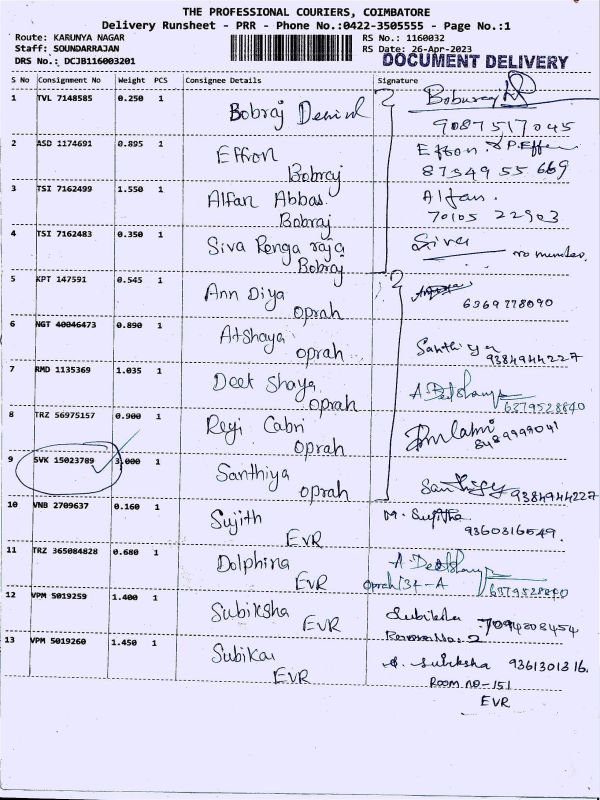 THE PROFESSIONAL COURIERS, COIMBATORE
Delivery Runsheet - PRR - Phone No.:0422-3505555 - Page No.:1
Route: KARUNYA NAGAR RS No.: 1160032
Staff: SOUNDARRAJAN RS Date: 26-Apr-2023
DRS No.: DCJB116003201 DOCUMENT DELIVERY
S No Consignment No Weight PCS Consignee Details Signature
1 TVL 7148585 0.250 1 Bobraj
9087517045
2 ASD 1174691 0.895 1 Effron Effron.
Bobraj 87549 55 669
3 TSI 7162499 1.550 1 Alfan Abbas Alfan.
Bobraj 70105 22903
4 TSI 7162483 0.350 1 Siva Renga raja Siva no number.
Bobraj
5 KPT 147591 0.545 1 Ann Diya
Oprah 6369778090
6 NGT 40046473 0.890 1 Atshaya Santhiya
Oprah 9384944227
7 RMD 1135369 1.035 1 Deet Shaya
Oprah 6379528840
8 TRZ 56975157 0.900 1 Regi Cabri
Oprah 8489999041
9 SVK 15023789 3.000 1 Santhiya
Oprah 9384944227
10 VNB 2709637 0.160 1 Sujith M. Sujitha
EVR 9360316549.
11 TRZ 365084828 0.680 1 Dolphina
EVR Oprah 134-A 6379528840
12 VPM 5019259 1.400 1 Subiksha Subiksha 7094808454
EVR Room No: 2
13 VPM 5019260 1.450 1 Subikai S. Subiksha 9361301316.
EVR Room no-151
EVR